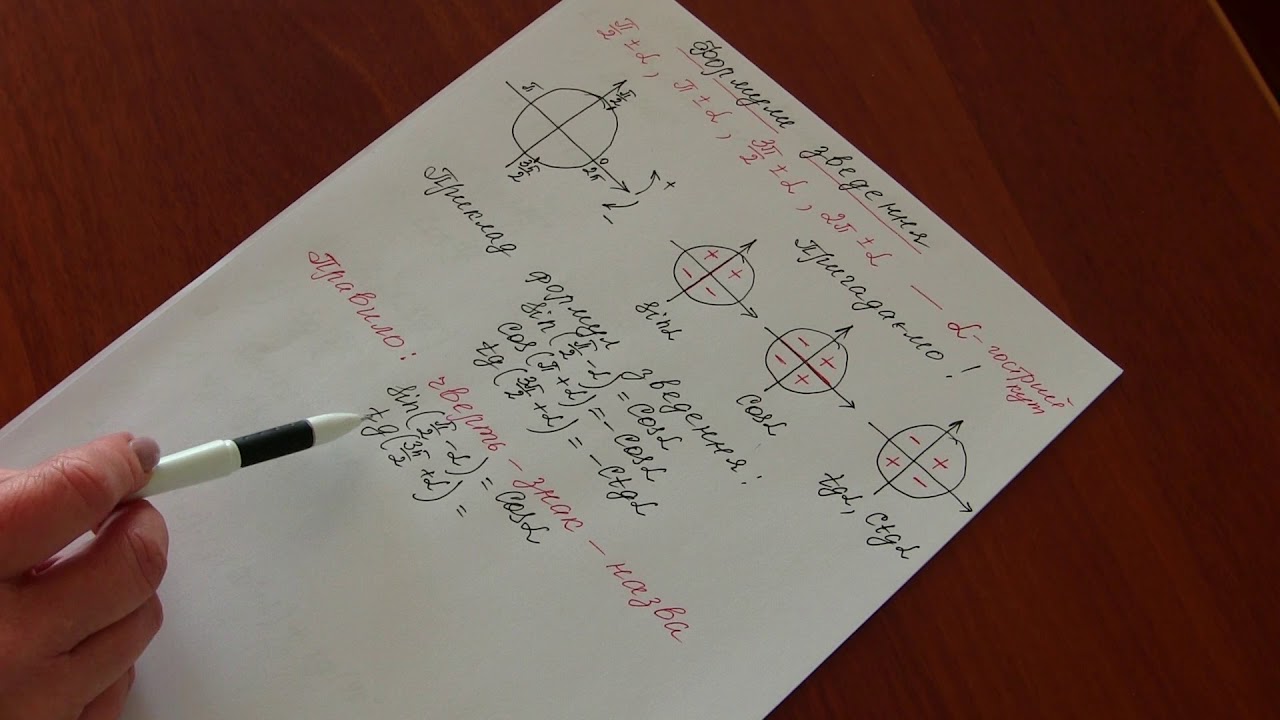 Формули зведення
π/2 ± α, π ± α, 3π/2 ± α, 2π ± α — α - гострий кут
Пригадаємо!
π
π/2
3π/2
0
2π
+
-
+ +
- -
sinα
- +
- +
cosα
- +
+ -
tgα, ctgα
Приклад формул зведення:
sin(π/2 - α) = cosα
cos(π + α) = - cosα
tg(3π/2 + α) = - ctgα
Правило: чверть - знак - назва
sin(π/2 - α) = cosα
tg(3π/2 + α) =